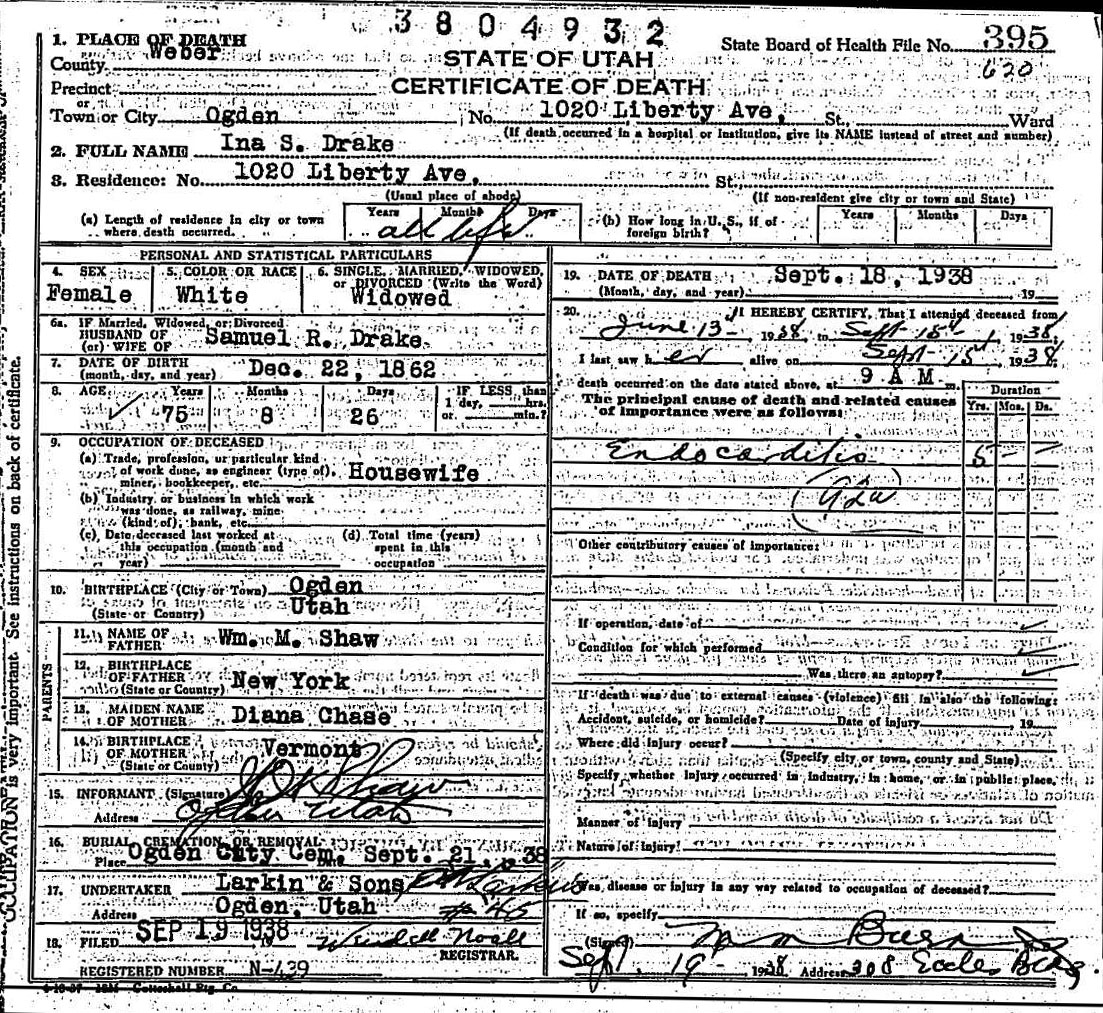 3804932
1. PLACE OF DEATH
County Weber
State Board of Health File No. 395
620
STATE OF UTAH
CERTIFICATE OF DEATH
Precinct
or
Town or City Ogden No. 1020 Liberty Ave, St., Ward
(If death occurred in a hospital or institution, give its NAME instead of street and number)
2. FULL NAME Ina S. Drake
3. Residence: No. 1020 Liberty Ave, St.,
(Usual place of abode) (If non-resident give city or town and State)
(a) Length of residence in city or town where death occurred. Years Months Days all life
(b) How long in U. S., if of foreign birth? Years Months Days
PERSONAL AND STATISTICAL PARTICULARS
4. SEX Female
5. COLOR OR RACE White
6. SINGLE, MARRIED, WIDOWED, or DIVORCED (Write the Word) Widowed
6a. IF Married, Widowed, or Divorced
HUSBAND OF
(or) WIFE OF Samuel R. Drake
7. DATE OF BIRTH
(month, day, and year) Dec. 22, 1862
8. AGE Years Months Days IF LESS than
1 day, hrs.
or min.?
75 8 26
9. OCCUPATION OF DECEASED
(a) Trade, profession, or particular kind
of work done, as engineer (type of),
miner, bookkeeper, etc. Housewife
(b) Industry or business in which work
was done, as railway, mine
(kind of), bank, etc.
(c) Date deceased last worked at
this occupation (month and
year)
(d) Total time (years)
spent in this
occupation
10. BIRTHPLACE (City or Town) Ogden
(State or Country) Utah
PARENTS
11. NAME OF
FATHER Wm. M. Shaw
12. BIRTHPLACE
OF FATHER New York
(State or Country)
13. MAIDEN NAME
OF MOTHER Diana Chase
14. BIRTHPLACE
OF MOTHER Vermont
(State or Country)
15. INFORMANT (Signature) Shaw
Address Ogden Utah
16. BURIAL, CREMATION, OR REMOVAL
Place Ogden City Cem. Sept. 21, 1938
17. UNDERTAKER Larkin & Sons
Address Ogden, Utah #45
18. FILED SEP 19 1938 Wendell Noall
REGISTRAR.
REGISTERED NUMBER N-439
19. DATE OF DEATH Sept. 18, 1938
(Month, day, and year) 19
20. I HEREBY CERTIFY, That I attended deceased from
June 13 1938, to Sept 18th, 1938,
I last saw her alive on Sept 15th 1938
death occurred on the date stated above, at 9 A M m.
The principal cause of death and related causes
of importance were as follows:
Duration
Yrs. Mos. Ds.
Endocarditis 5 - -
92a
Other contributory causes of importance:
If operation, date of
Condition for which performed
Was there an autopsy?
If death was due to external causes (violence) fill in also the following:
Accident, suicide, or homicide? Date of injury 19
Where did injury occur?
(Specify city or town, county and State)
Specify whether injury occurred in industry, in home, or in public place,
Manner of injury
Nature of injury
Was disease or injury in any way related to occupation of deceased?
If so, specify
(Signed)
Sept. 19 1938 Address 308 Eccles Bldg.
OCCUPATION is very important. See instructions on back of certificate.